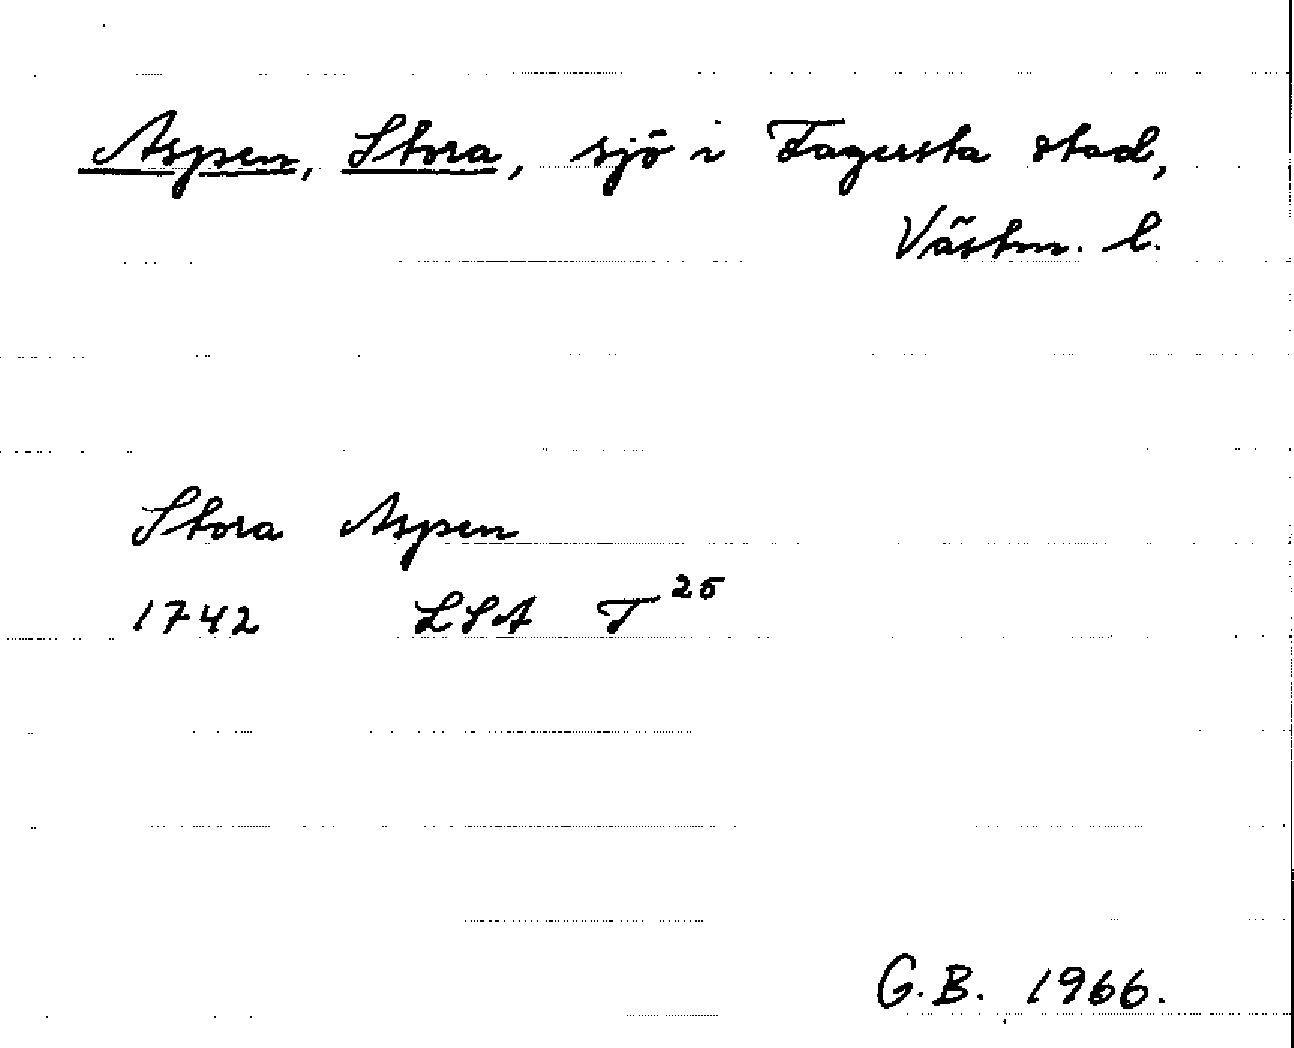 Aspen, Stora, sjö i Fagersta stad,
Västm. l.
Stora Aspen
1742 LSA T 25
G.B. 1966.